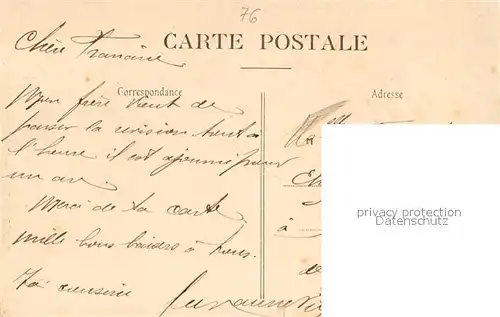 76
Chère Francine
CARTE POSTALE
Correspondance
Adresse
Mon frère vient de
passer la revision tout à
l'heure il est ajourné pour
un an.
Merci de ta carte
mille bons baisers à tous.
Ta cousine
privacy protection
Datenschutz
à